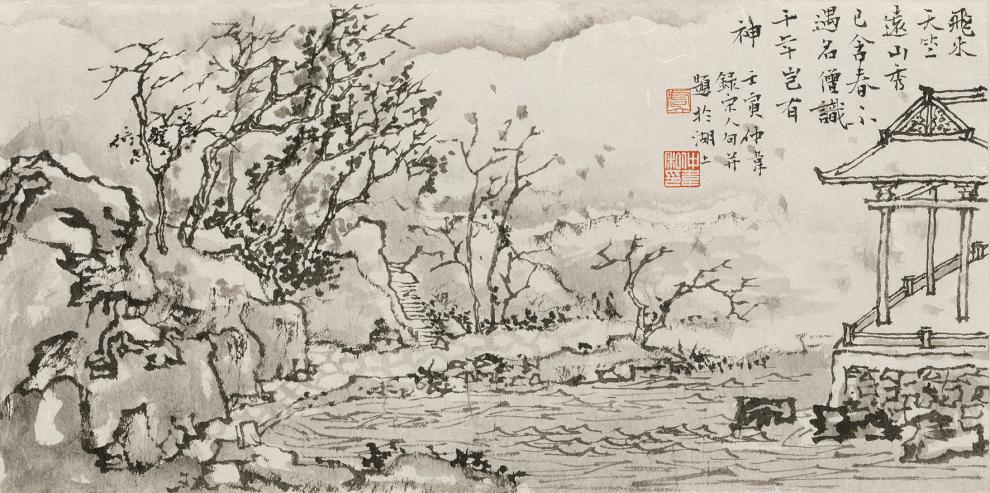 飛來
天竺
遠山秀
已含春不
遇名僧識
千年豈有
神
壬寅仲業
録宋人句并
題於湖上